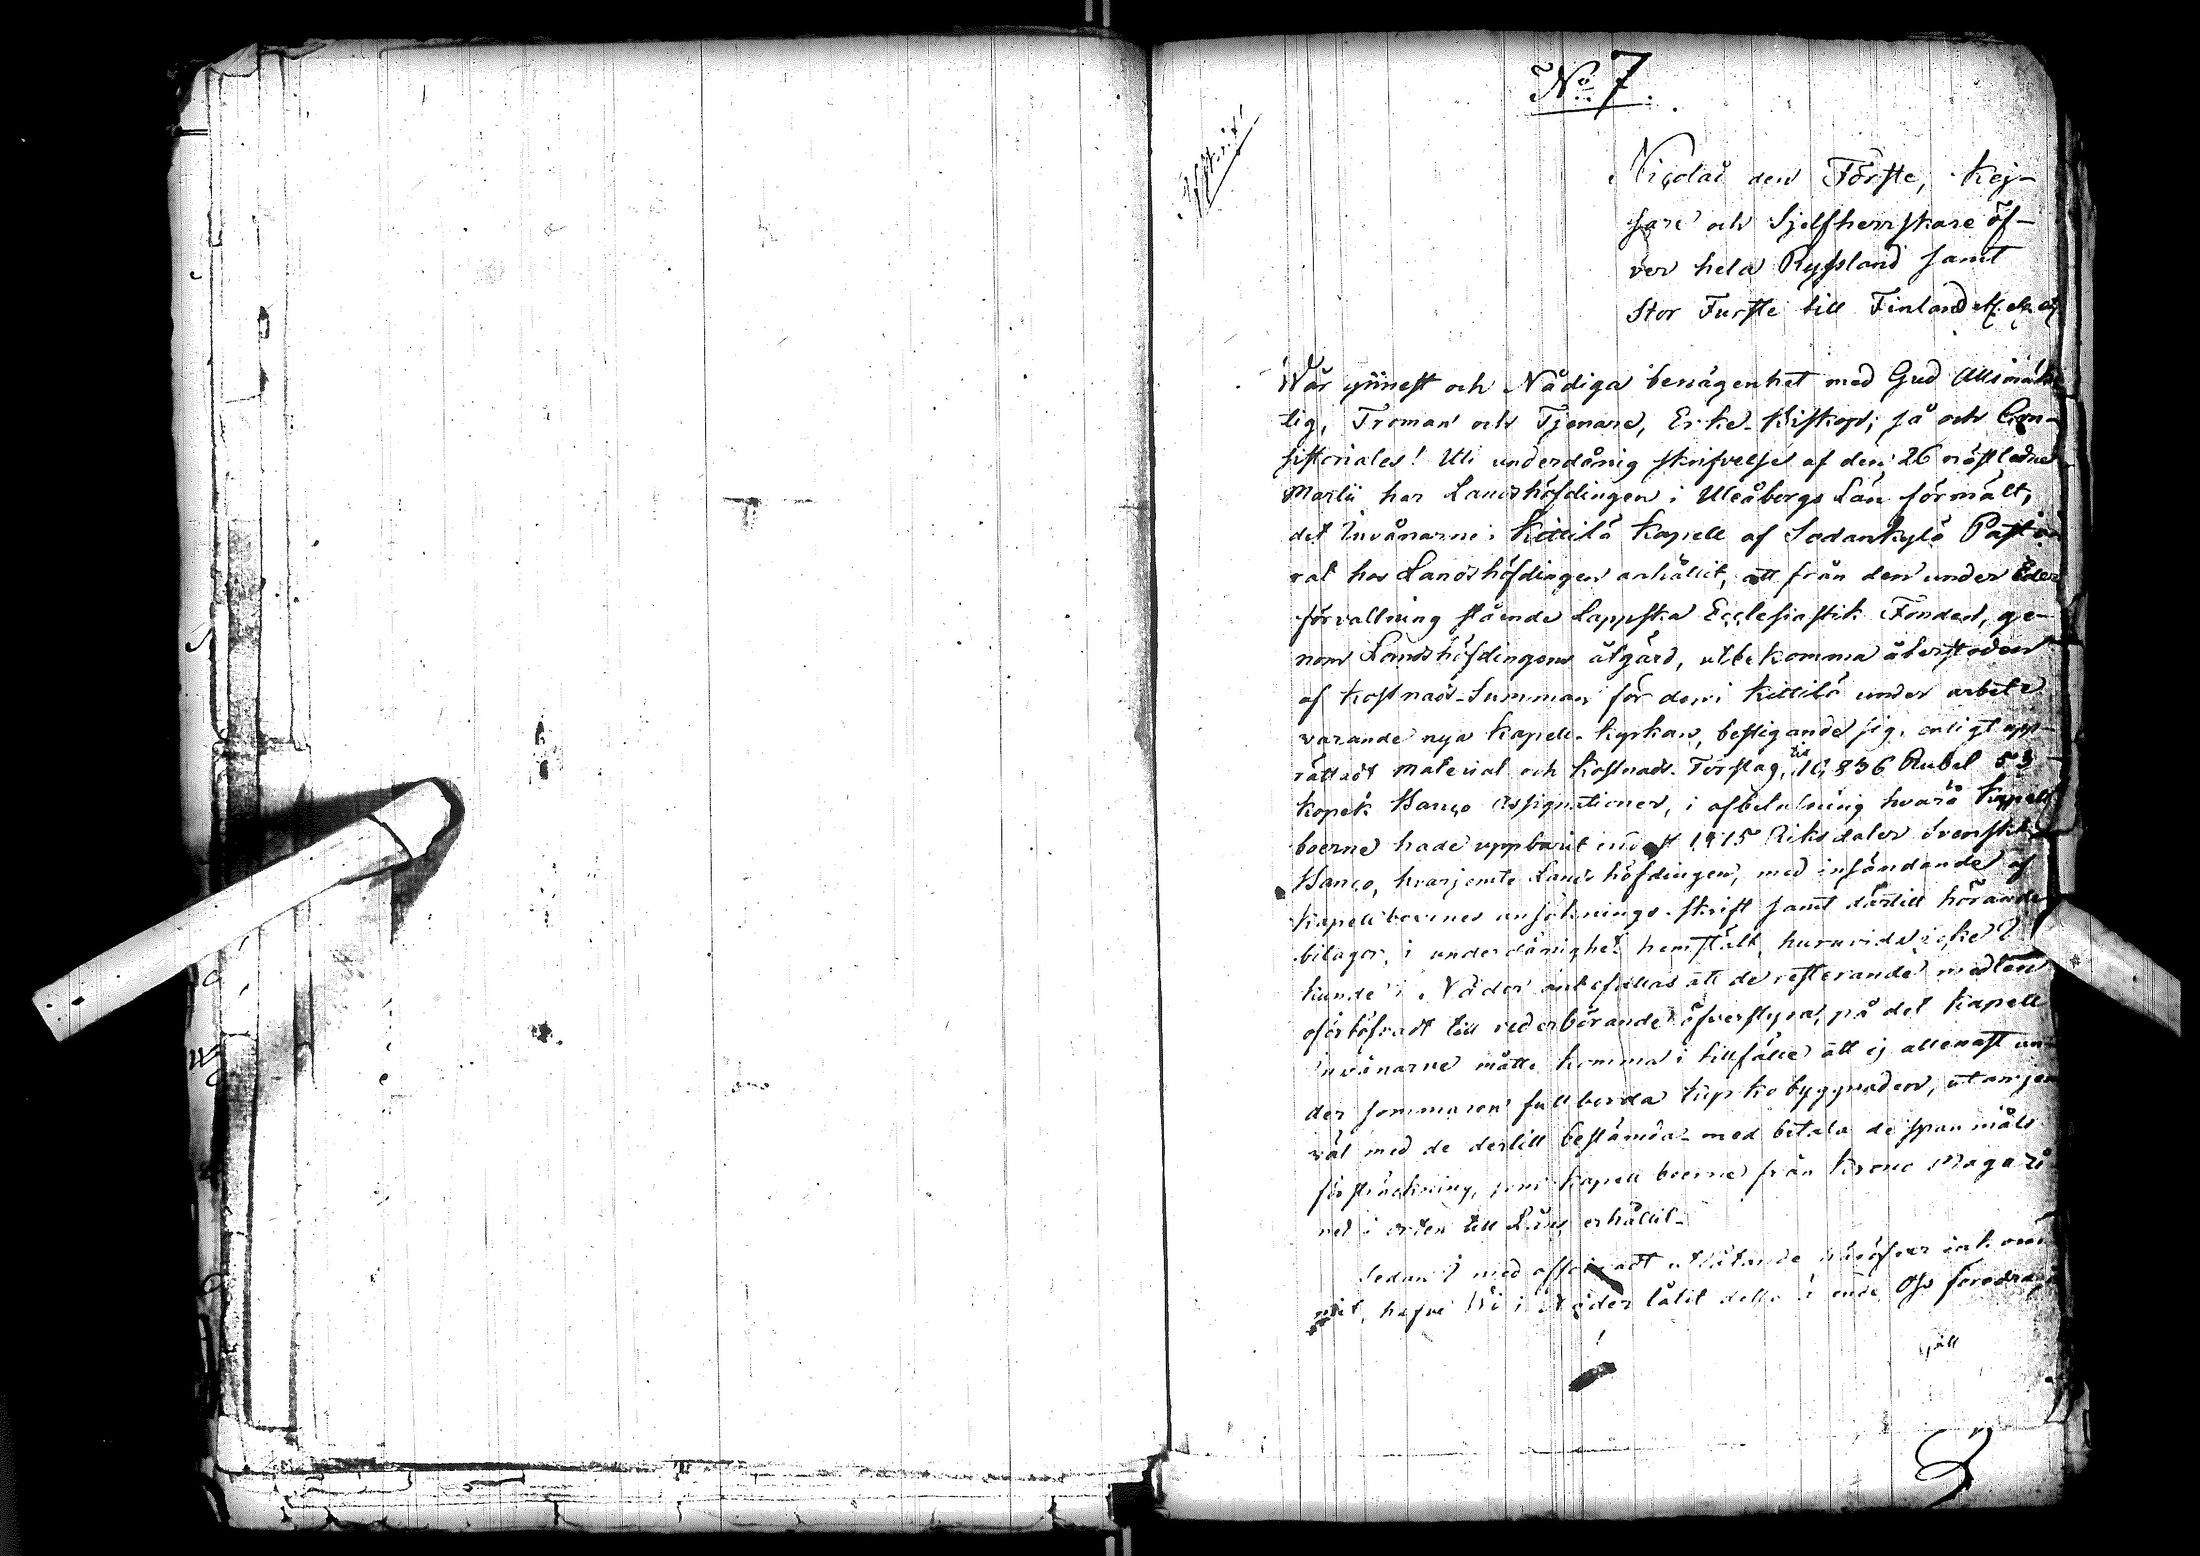 No 7.
Afskrift
Nicolai den Förste, Kej-
sare och Sjelfherrskare öf-
ver hela Ryssland samt
Stor Furste till Finland etc. etc. etc.
Wår ynnest och Nådiga benägenhet med Gud Allsmäk-
tig, Troman och Tjenare, Erke-Biskop, så och Con-
sistoriales! Uti underdånig skrifvelse af den 26 nästledne
Martii har Landshöfdingen i Uleåborgs Län förmält,
det Invånarne i Kittilä Kapell af Sodankylä Pasto-
rat hos Landshöfdingen anhållit, att från den under Eder
förvaltning stående Lappska Ecclesiastik Fonden, ge-
nom Landshöfdingens åtgärd, utbekomma återstoden
af kostnads-Summan för den i Kittilä under arbete
varande nya Kapell-kyrkan, bestigande sig, enligt upp-
rättadt Material och Kostnads-Förslag, till 10,836 Rubel 53
kopek Banco Assignationer, i afbetalning hvarå Kapell-
boerne hade uppburit endast 1415 Riksdaler Svenskt
Banco, hvarjemte Landshöfdingen, med insändande af
Kapellboernes ansöknings-skrift samt dertill hörande
bilagor, i underdånighet hemställt, huruvida icke I
kunde i Nåder anbefallas att de resterande medlen
oförtöfvadt till vederbörande öfverstyra, på det Kapell
Invånarne måtte komma i tillfälle att ej allenast un-
der sommaren fullborda Kyrkobyggnaden, utan jem-
väl med de dertill bestämda med betala de spanmåls
försträckning, som Kapellboerne från Krono Magazi-
net i orten till Låns erhållit.
Sedan I med affordradt utlåtande häröfver inkom-
mit, hafve Wi i Nåder låtit detta ärende Oss föredragas